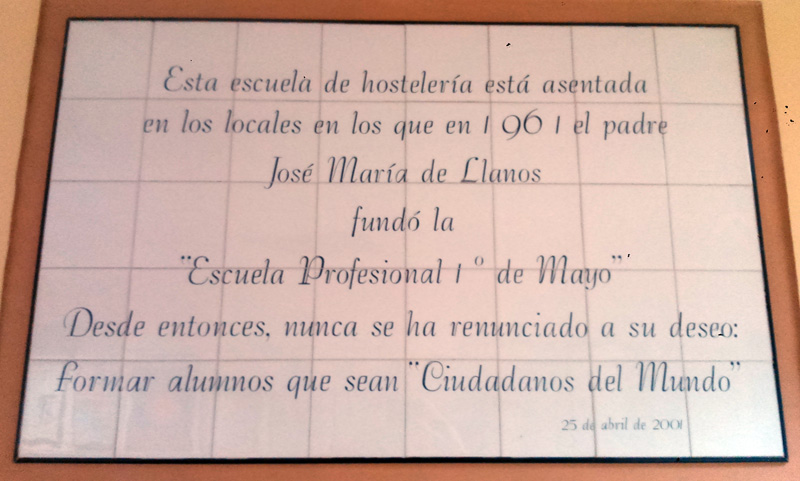 Esta escuela de hostelería está asentada
en los locales en los que en 1961 el padre
José María de Llanos
fundó la
"Escuela Profesional 1º de Mayo"
Desde entonces, nunca se ha renunciado a su deseo:
formar alumnos que sean "Ciudadanos del Mundo"
25 de abril de 2001